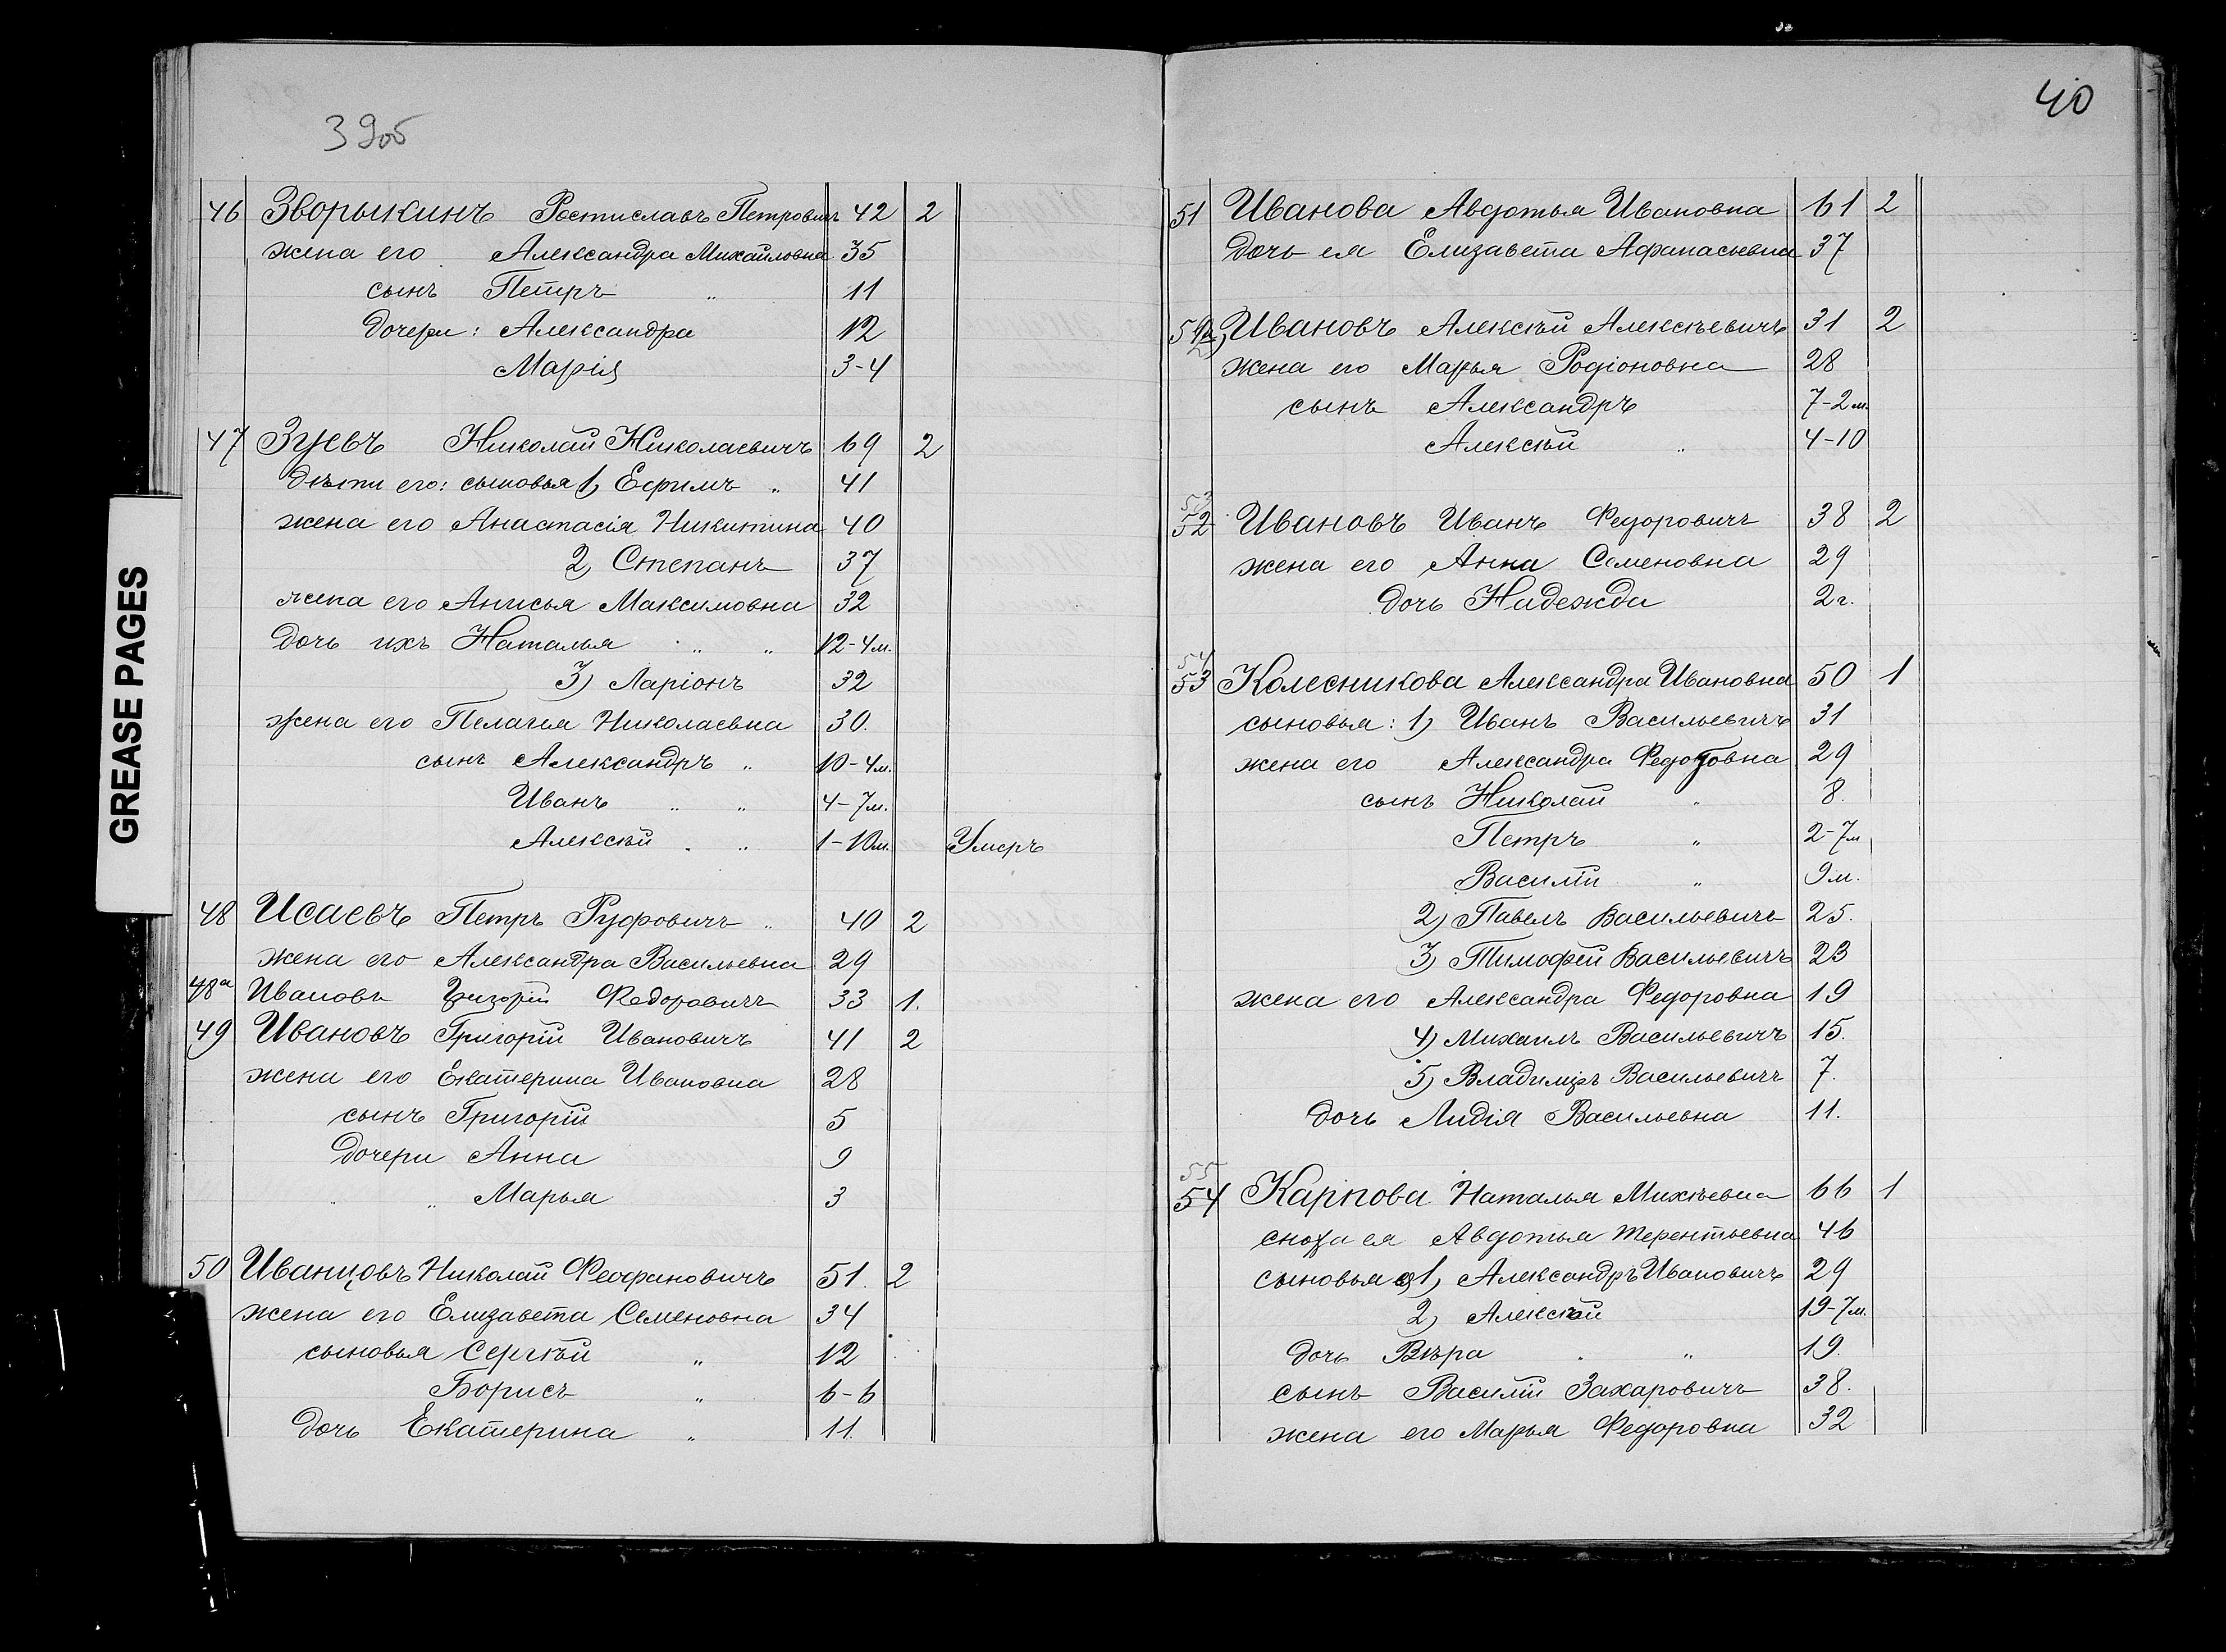 39об
46 Зворыкинъ Ростиславъ Петровичъ 42 2
жена его Александра Михайловна 35
сынъ Петръ " 11
дочери: Александра 12
Марія 3-4
47 Зуевъ Николай Николаевичъ 69 2
дѣти его: сыновья 1) Ефимъ " 41
жена его Анастасія Никитина 40
2) Степанъ 37
жена его Анисья Максимовна 32
дочь ихъ Наталья " " 12-4м.
3) Ларіонъ 32
жена его Пелагея Николаевна 30.
сынъ Александръ " 10-4м.
Иванъ " " 4-7м.
Алексѣй " " 1-10м. Умеръ
48 Исаевъ Петръ Руфовичъ " 40 2
жена его Александра Васильевна 29
48а Ивановъ Григорій Федоровичъ 33 1.
49 Ивановъ Григорій Ивановичъ 41 2
жена его Екатерина Ивановна 28
сынъ Григорій 5
дочери Анна 9
" Марья 3
50 Иванцовъ Николай Феофановичъ 51. 2
жена его Елизавета Семеновна 34
сыновья Сергѣй " 12
Борисъ " 6-6
дочь Екатерина " 11.
GREASE PAGES
40
51 Иванова Авдотья Ивановна 61 2
дочь ея Елизавета Афанасьевна 37
Ивановъ Алексѣй Алексѣевичъ 31 2
жена его Марья Родіоновна 28
сынъ Александръ 7-2м.
Алексѣй " 4-10
53
52 Ивановъ Иванъ Федоровичъ 38 2
жена его Анна Семеновна 29
дочь Надежда 2г.
54
53 Колесникова Александра Ивановна 50 1
сыновья: 1) Иванъ Васильевичъ 31
жена его Александра Федотовна 29
сынъ Николай " 8.
Петръ " 2-7м
Василій " 9м.
2) Павелъ Васильевичъ 25.
3) Тимофей Васильевичъ 23
жена его Александра Федоровна 19
4) Михаилъ Васильевичъ 15.
5) Владиміръ Васильевичъ 7.
дочь Лидія Васильевна 11.
55
54 Карпова Наталья Михѣевна 66 1
сноха ея Авдотья Терентьевна 46
сыновья 1) Александръ Ивановичъ 29
2) Алексѣй 19-7м.
дочь Вѣра " " 19.
сынъ Василій Захаровичъ 38.
жена его Марья Федоровна 32